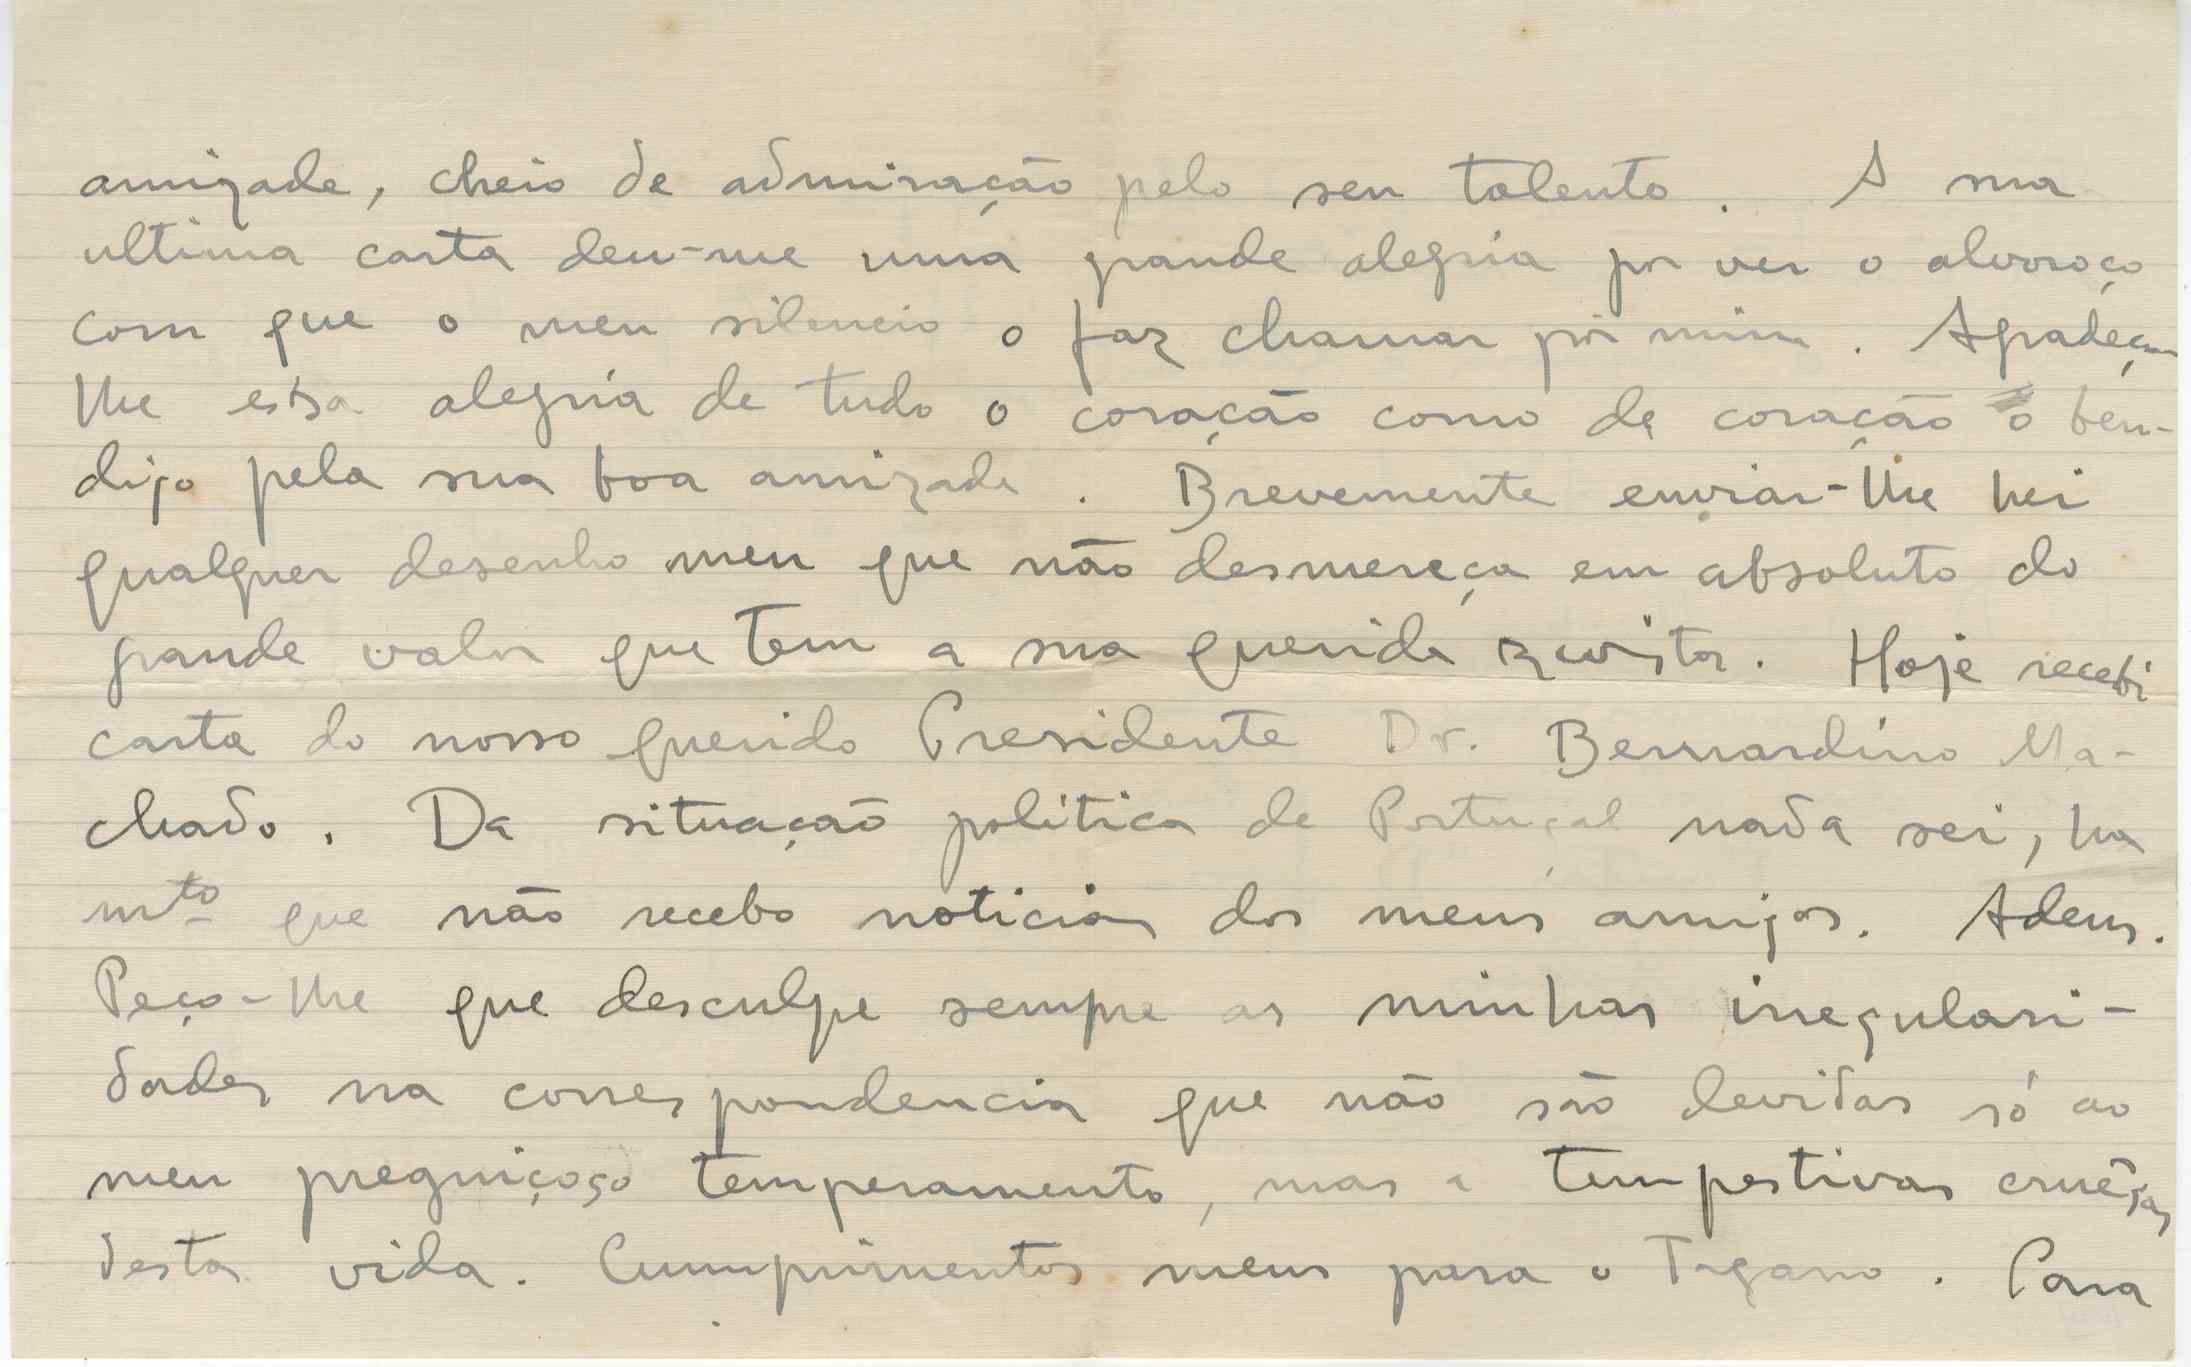 amizade, cheio de admiração pelo seu talento. A sua
ultima carta deu-me uma grande alegria por ver o alvoroço
com que o meu silencio o faz chamar por mim. Agradeço
lhe essa alegria de tudo o coração como de coração o ben-
digo pela sua boa amizade. Brevemente enviar-lhe hei
qualquer desenho meu que não desmereça em absoluto do
grande valor que tem a sua querida revista. Hoje recebi
carta do nosso querido Presidente Dr. Bernardino Ma-
chado. Da situação politica de Portugal nada sei, ha
mto que não recebo noticias dos meus amigos. Adeus.
Peço-lhe que desculpe sempre as minhas irregulari-
dades na correspondencia que não são devidas só ao
meu preguiçoso temperamento, mas a tempestivas
desta vida. Cumprimentos meus para o Tagano. Para